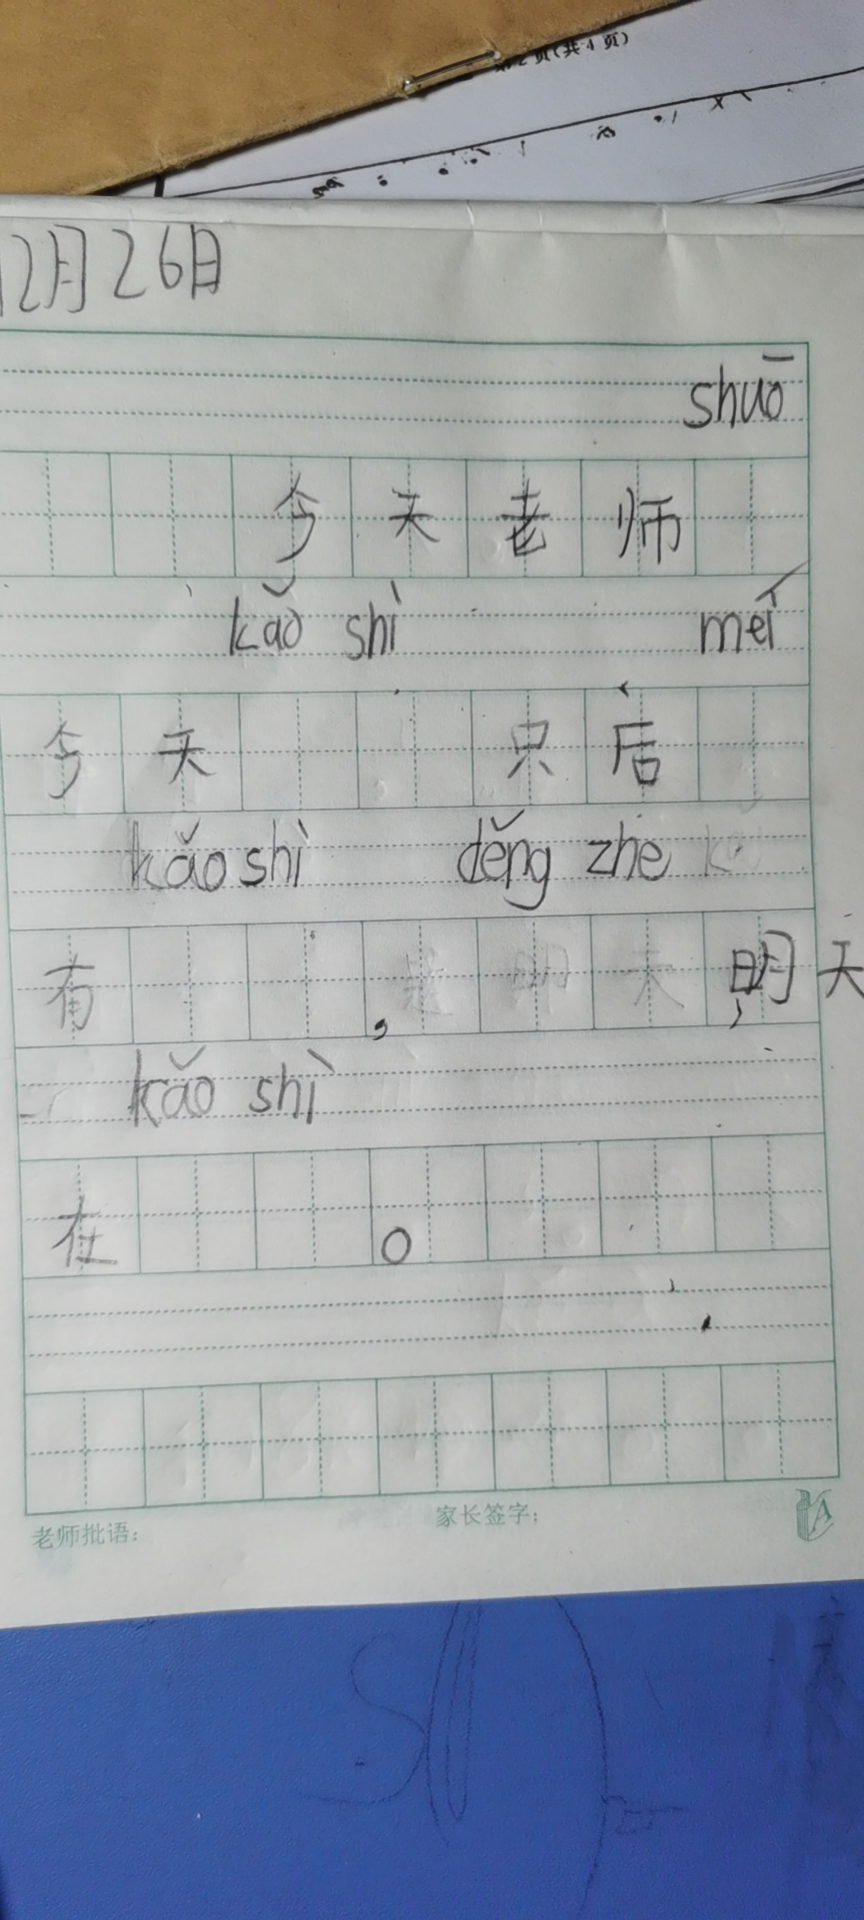 第2页(共4页)
12月26日
shuō
今天老师
kǎo shì méi
今天 只后
kǎo shì děng zhe
有 , 明天
kǎo shì
在 。
老师批语: 家长签字: